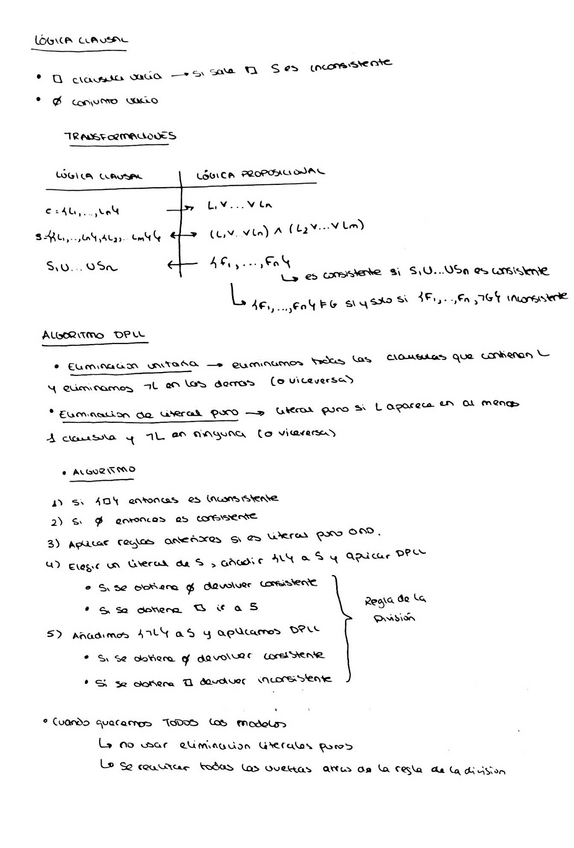 LÓGICA CLAUSAL
• □ clausula vacia → si sale □ S es inconsistente
• ∅ conjunto vacio
TRANSFORMACIONES
LÓGICA CLAUSAL | LÓGICA PROPOSICIONAL
C={L1,...,Ln} → L1V...VLn
S={{L1,...,Ln},{L2,...Lm}} ↔ (L1V...VLn) ∧ (L2V...VLm)
S1U...USn ← {F1,...,Fn}
↳ es consistente si S1U...USn es consistente
↳ {F1,...,Fn} ⊨ G si y solo si {F1,...,Fn,¬G} inconsistente
ALGORITMO DPLL
• Eliminacion unitaria → eliminamos todas las clausulas que contienen L
y eliminamos ¬L en las demas (o viceversa)
• Eliminacion de literal puro → literal puro si L aparece en al menos
1 clausula y ¬L en ninguna (o viceversa)
• ALGORITMO
1) Si {□} entonces es inconsistente
2) Si ∅ entonces es consistente
3) Aplicar reglas anteriores si es literal puro o no.
4) Elegir un literal de S, añadir {L} a S y aplicar DPLL
• Si se obtiene ∅ devolver consistente
• Si se obtiene □ ir a 5
5) Añadimos {¬L} a S y aplicamos DPLL
• Si se obtiene ∅ devolver consistente
• Si se obtiene □ devolver inconsistente
Regla de la
División
• Cuando queramos TODOS los modelos
↳ no usar eliminacion literales puros
↳ Se realizar todas las vueltas atras de la regla de la division